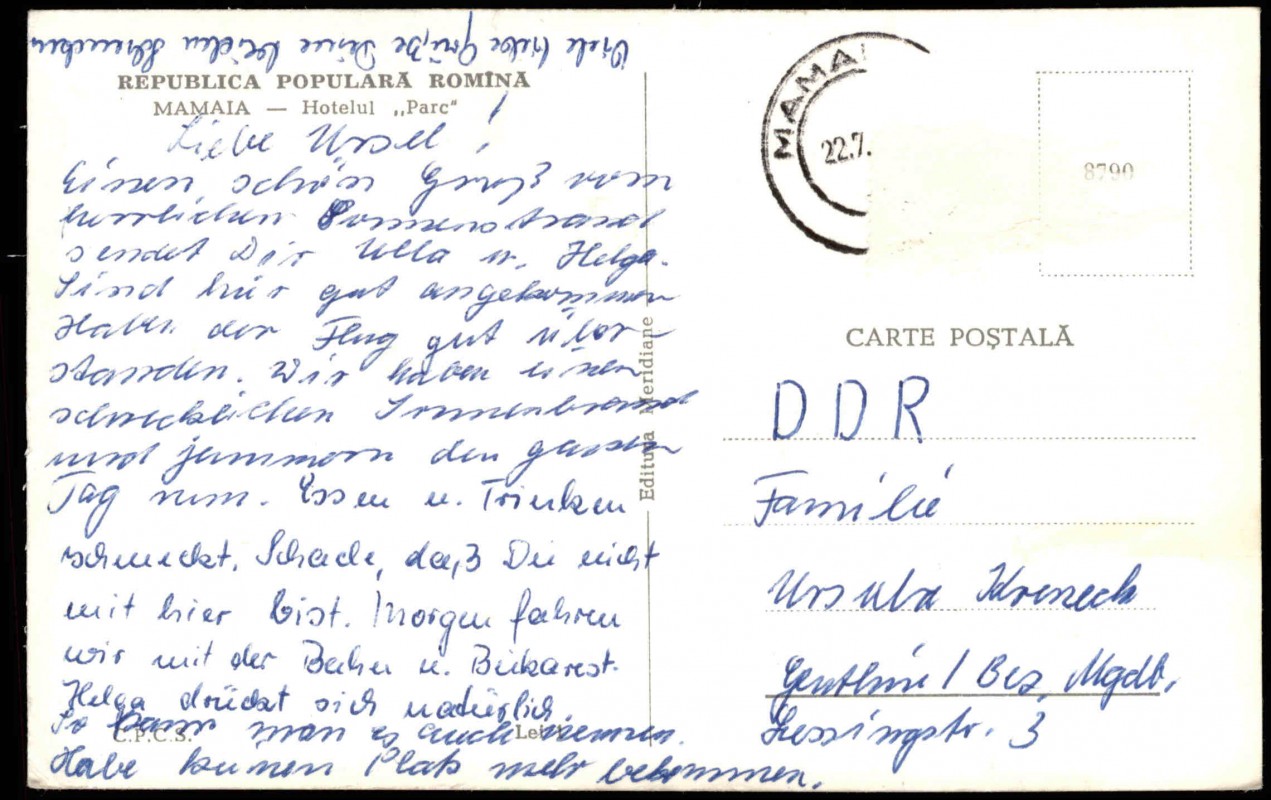 Viele liebe Grüße Deine
REPUBLICA POPULARĂ ROMÎNĂ
MAMAIA — Hotelul „Parc“
Liebe Ursel!
Einen schön Gruß vom
herrlichen Sonnenstrand
sendet Dir Ulla u. Helga.
Sind hier gut angekommen
Haben den Flug gut über-
standen. Wir haben einen
schrecklichen Sonnenbrand
und jammern den ganzen
Tag rum. Essen u. Trinken
schmeckt. Schade, daß Du nicht
mit hier bist. Morgen fahren
wir mit der Bahn n. Bukarest.
Helga drückt sich natürlich.
So kann man es auch nennen.
Habe keinen Platz mehr bekommen.
C.P.C.S.
Lei
Editura Meridiane
MAMAI
22.7.
8790
CARTE POŞTALĂ
DDR
Familie
Ursula
Genthin / Bez. Mgdb.
Lessingstr. 3